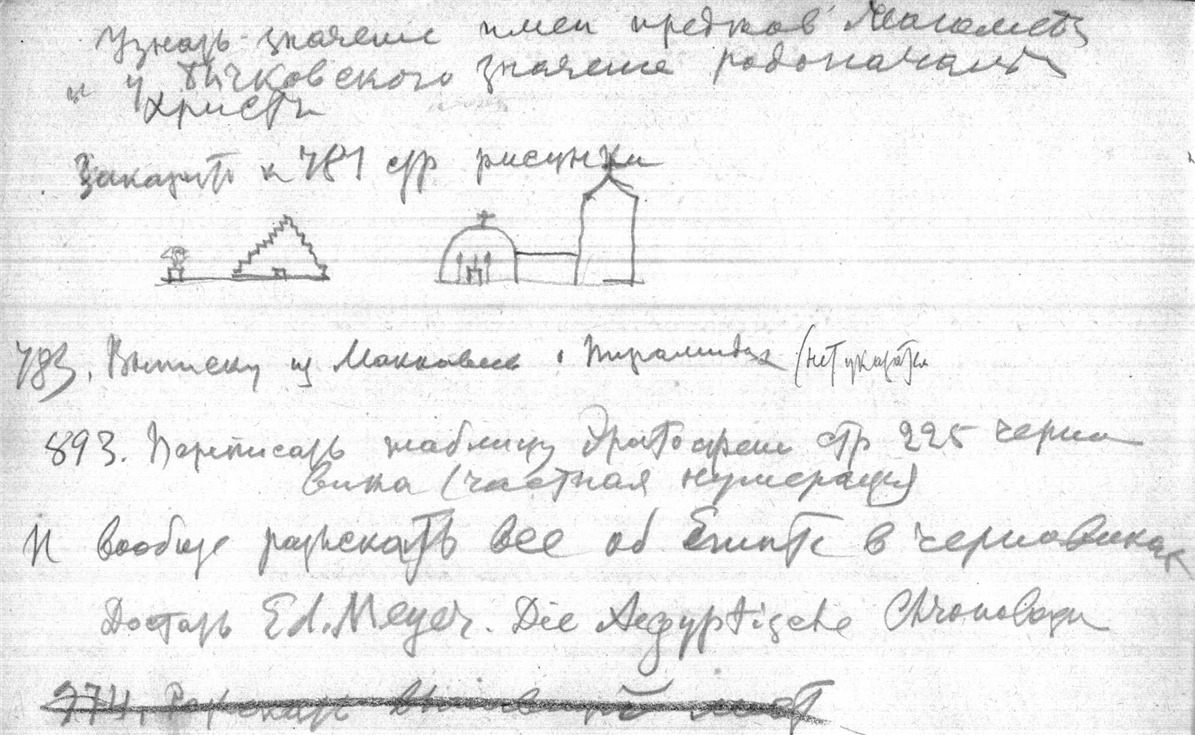 Узнать значение имен предков Магомета
и у Бычковского значение родоначальн
Христа
Заказать к 781 стр рисунки
783. Выписку из Маккавеев о Пирамидах (нет указатки
893. Переписать таблицу Эратосфена стр 225 черно
вика (частная нумерация)
И вообще разыскать все об Египте в черновиках
Достать Ed. Meyer. Die Aegyptische Chronologi